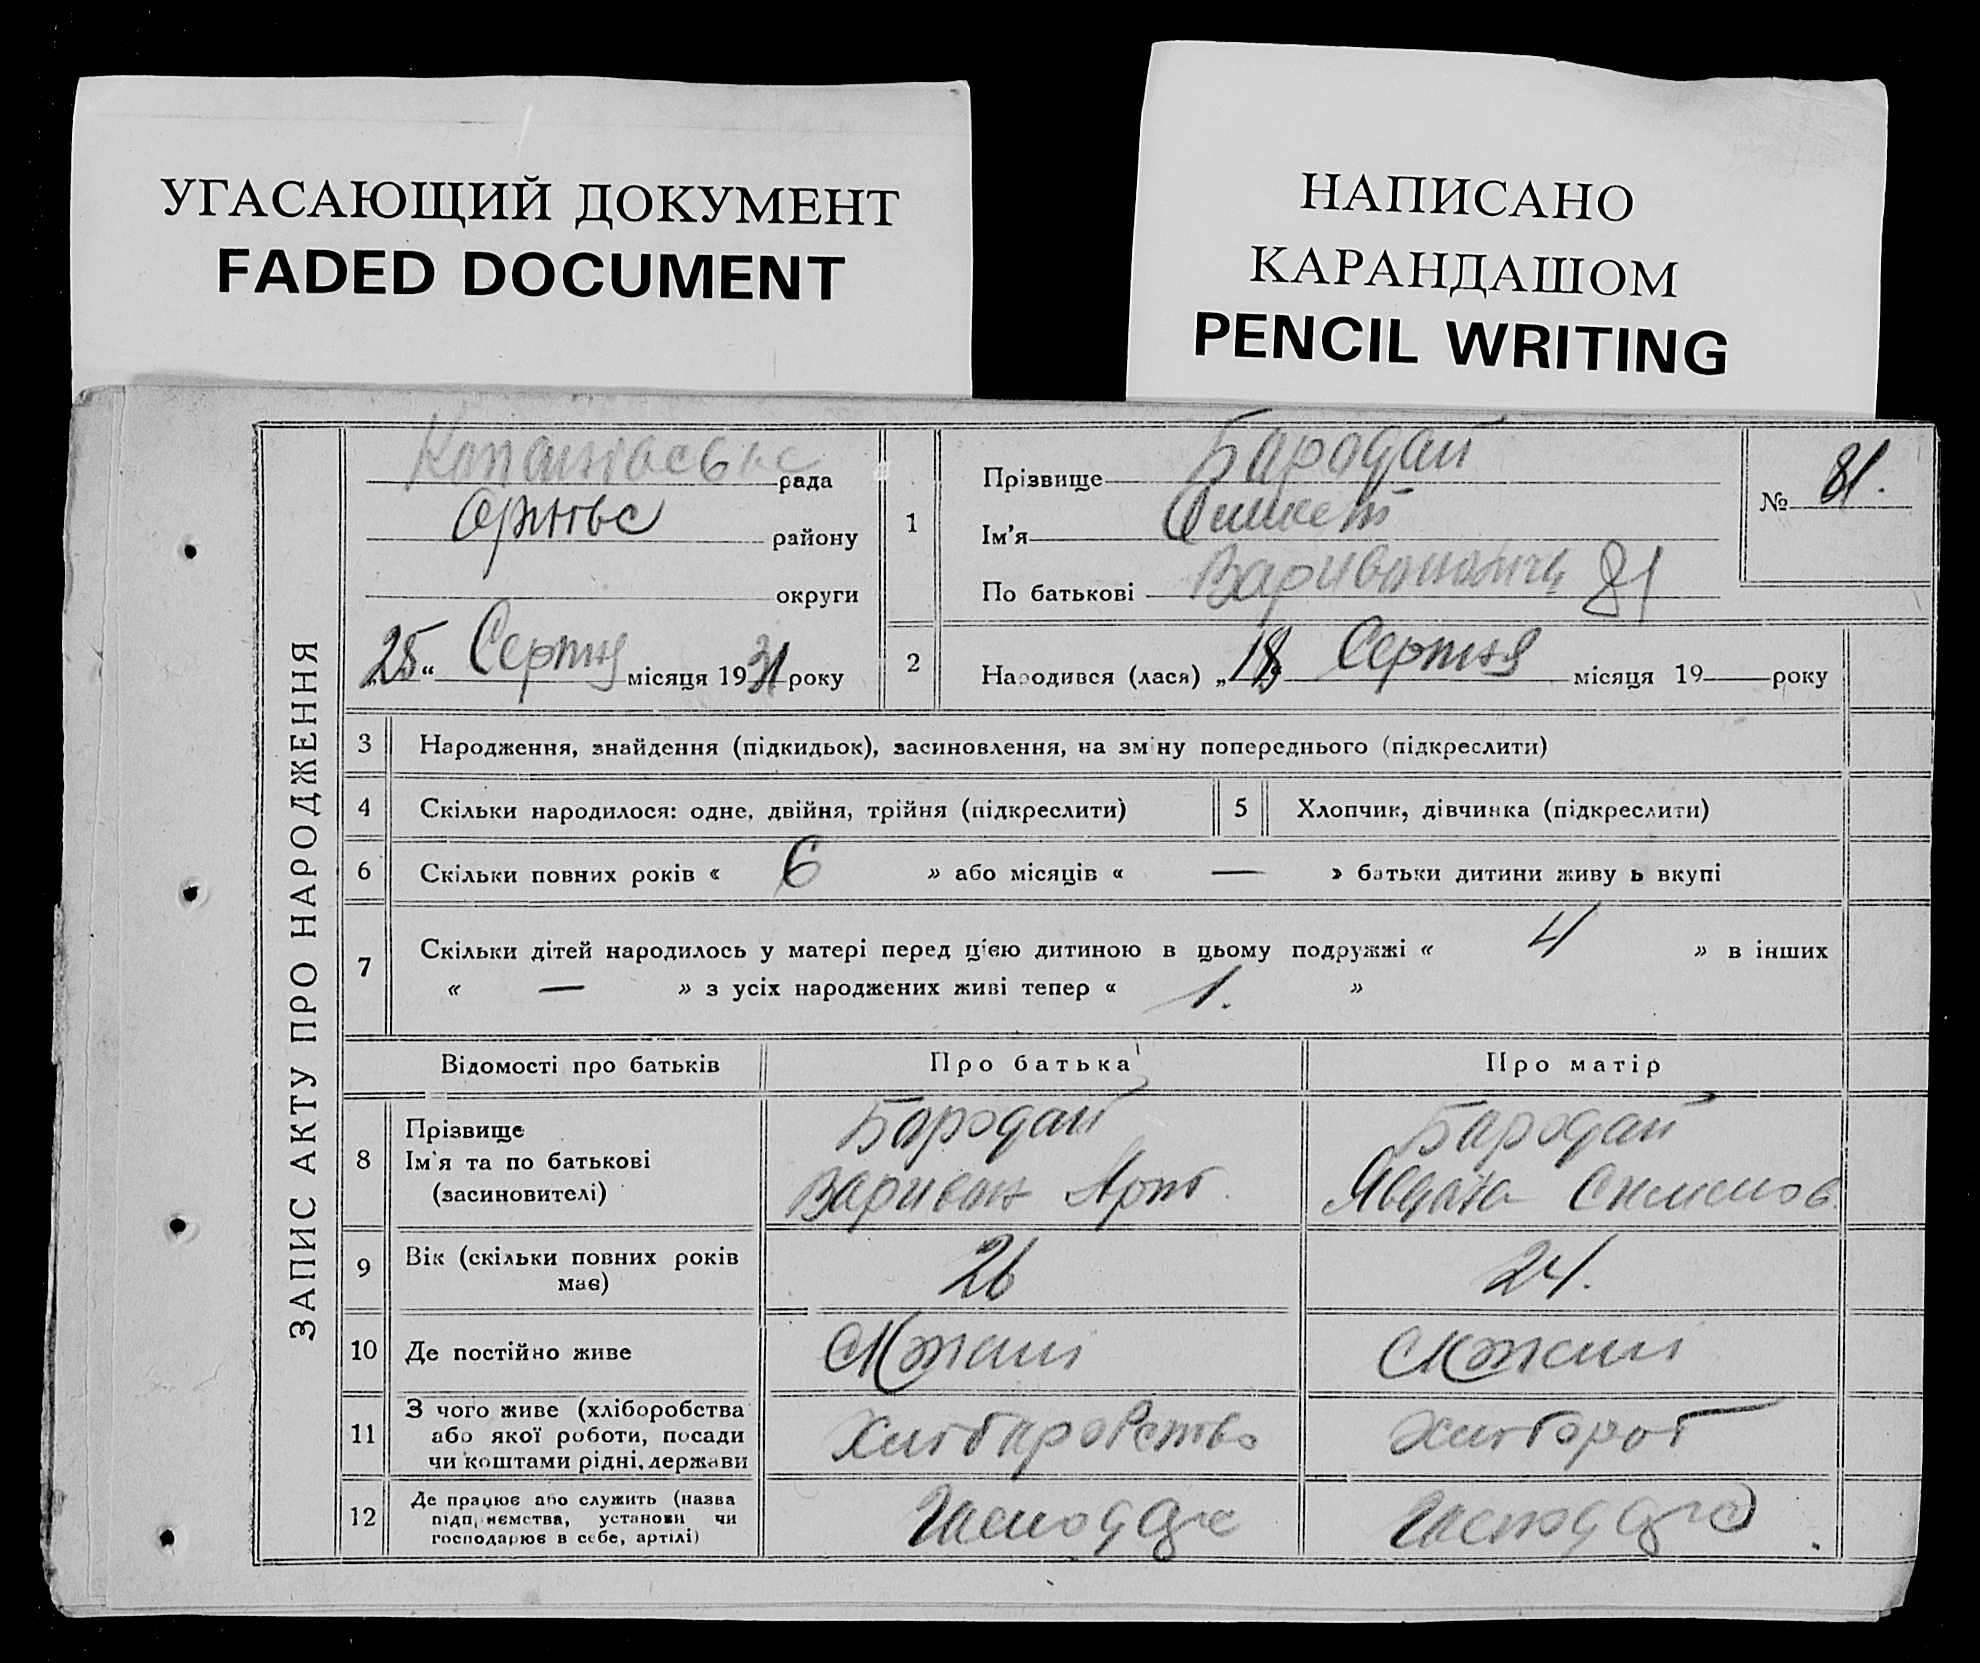 УГАСАЮЩИЙ ДОКУМЕНТ
FADED DOCUMENT
НАПИСАНО
КАРАНДАШОМ
PENCIL WRITING
ЗАПИС АКТУ ПРО НАРОДЖЕННЯ
рада
району
округи
„25“ Серпня місяця 1931 року
1
Прізвище Бародай
Ім'я
По батькові Варивонович 81
№ 81.
2
Народився (лася) „18 Серпня місяця 19 року
3 Народження, знайдення (підкидьок), засиновлення, на зміну попереднього (підкреслити)
4 Скільки народилося: одне, двійня, трійня (підкреслити) 5 Хлопчик, дівчинка (підкреслити)
6 Скільки повних років « 6 » або місяців « — » батьки дитини живу ь вкупі
7 Скільки дітей народилось у матері перед цією дитиною в цьому подружжі « 4 » в інших
« — » з усіх народжених живі тепер « 1. »
Відомості про батьків Про батька Про матір
8 Прізвище Бородай Бародай
Ім'я та по батькові
(засиновителі) Варивон
9 Вік (скільки повних років має) 26 24.
10 Де постійно живе
11 З чого живе (хліборобства
або якої роботи, посади
чи коштами рідні, держави
12 Де працює або служить (назва
підприємства, установи чи
господарює в себе, артілі)